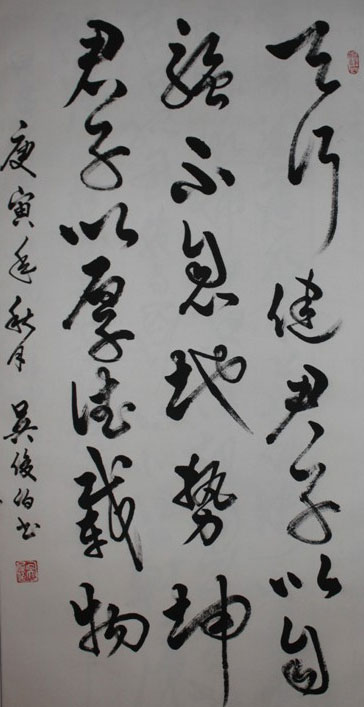 天行健君子以自
强不息地势坤
君子以厚德载物
庚寅年秋月 吴俊伯书